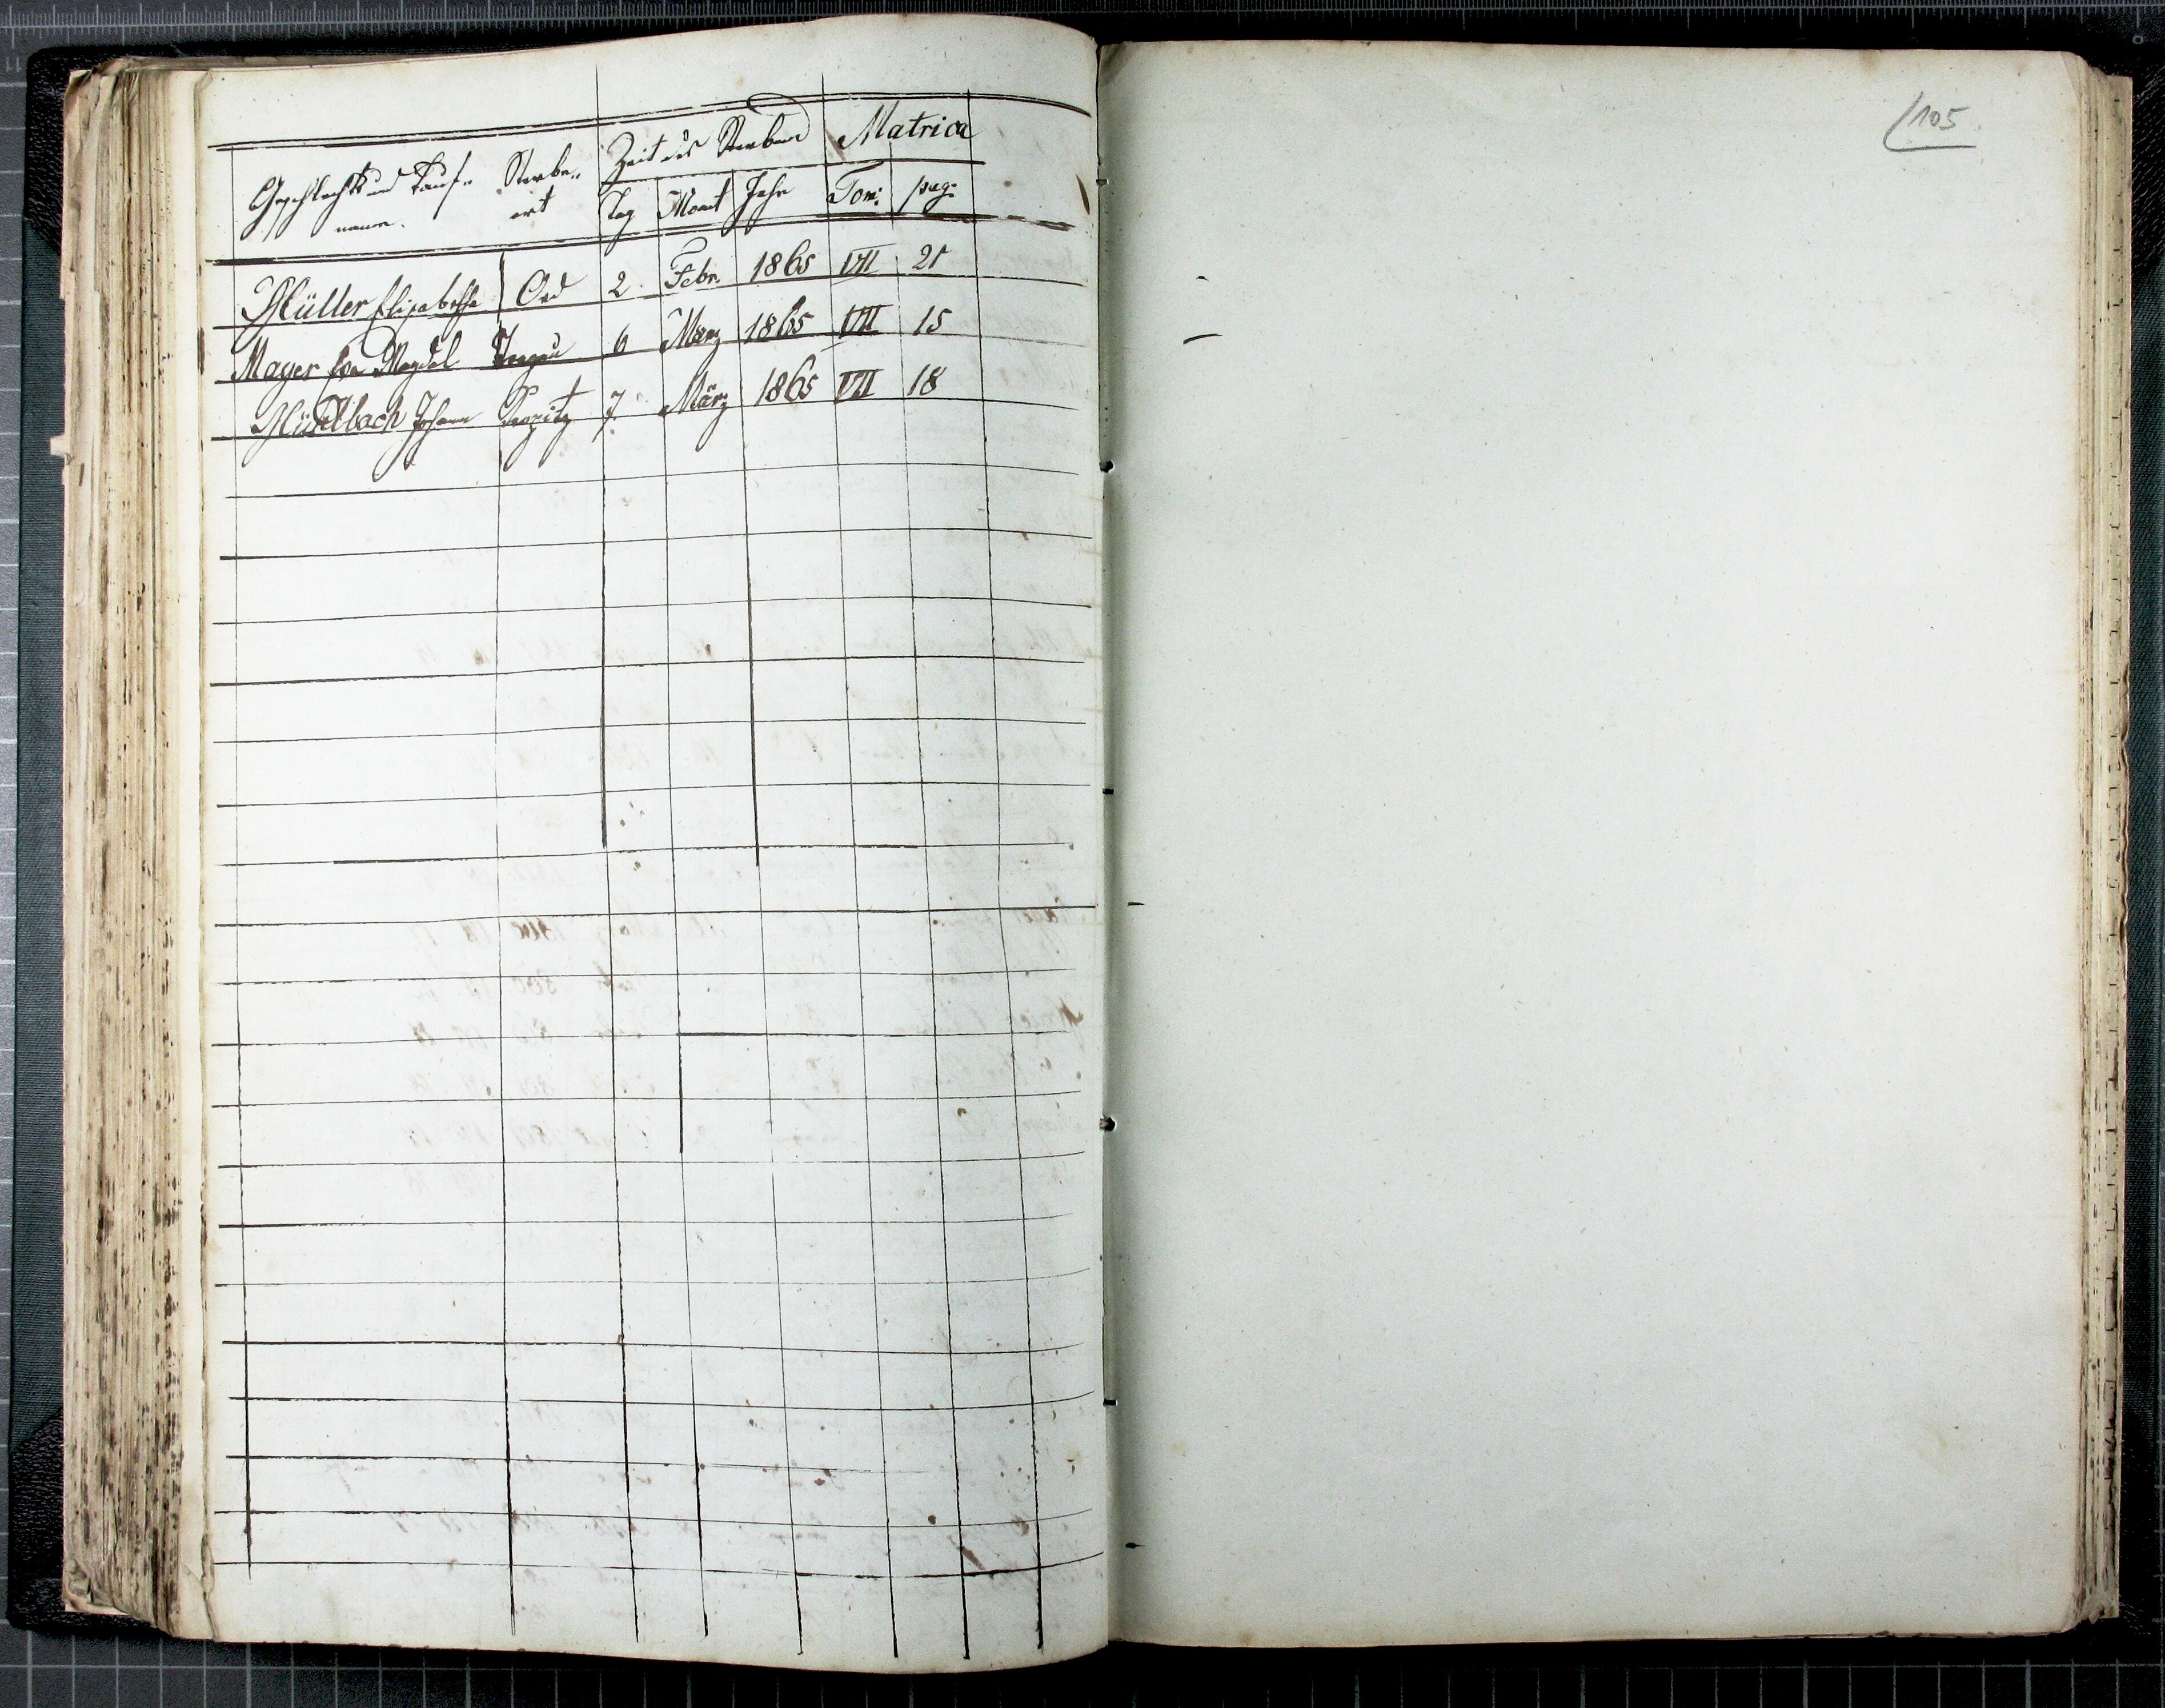 105
Geschlechts und Tauf- Sterbe- Zeit des Sterbens Matrica
name. ort Tag Monat Jahr Tom: pag:
Müller Elisabetha Oed 2. Febr. 1865 VII 21
Mayer Magdal 6 März 1865 VII 15
Johann 7. März 1865 VII 18